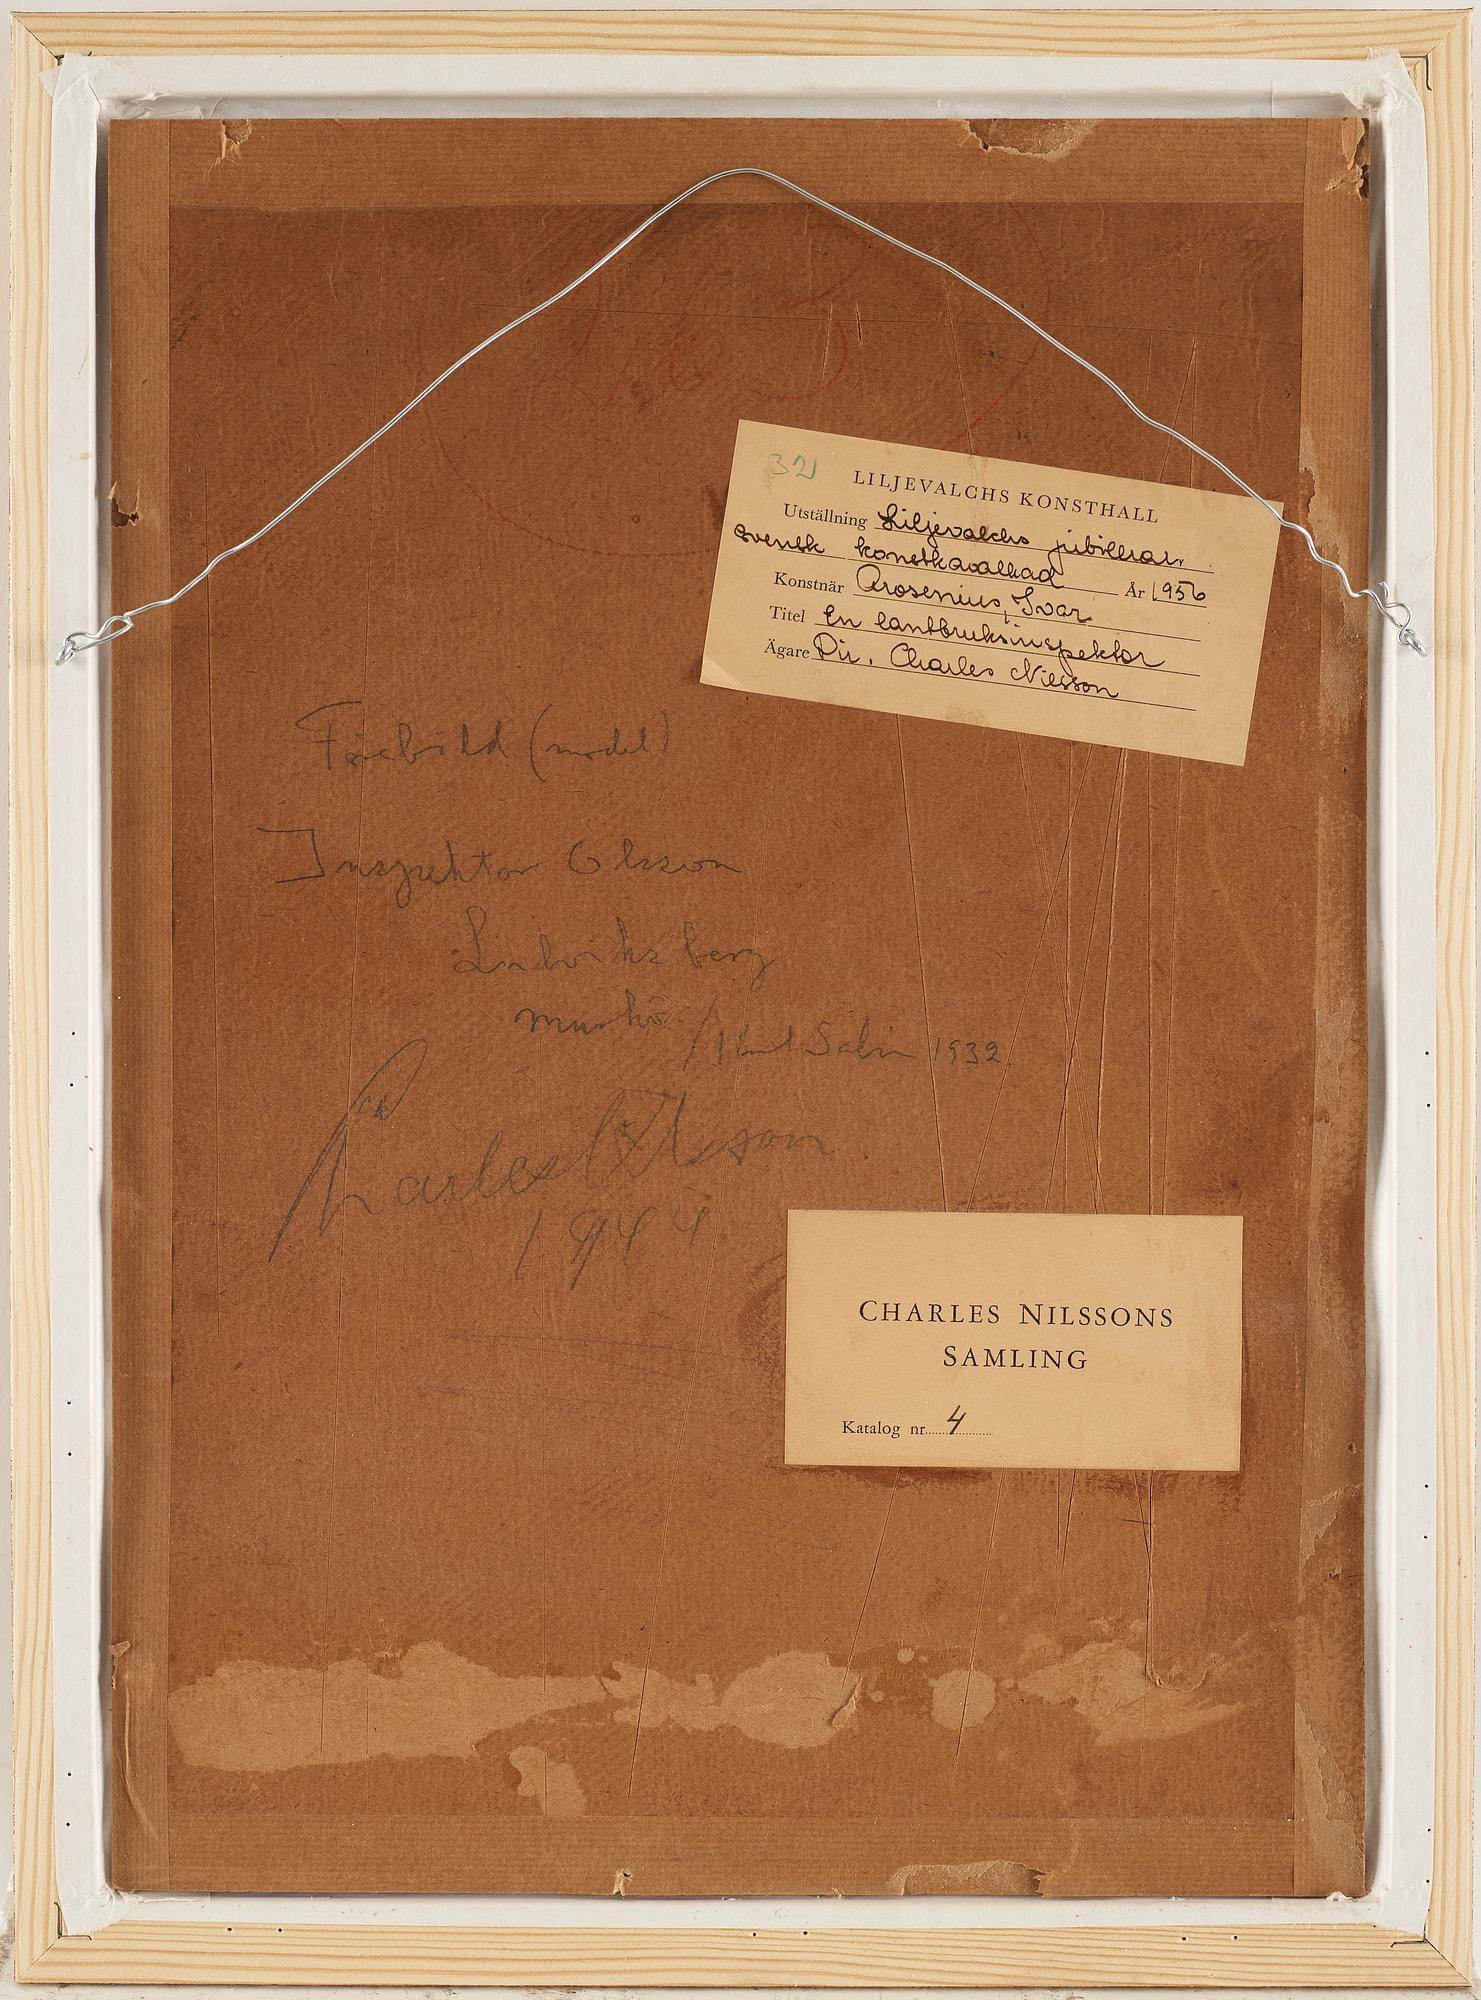 263
32
LILJEVALCHS KONSTHALL
Utställning Liljevalchs jubilear.
svensk konstkavalkad År 1956
Konstnär Arosenius, Ivar
Titel En lantbruksinspektor
Ägare Dir. Charles Nilsson
Förebild (model)
Inspektor Olsson
Ludviksberg
Muskö.
/ Sahlin 1932.
Charles Nilsson
1944
CHARLES NILSSONS
SAMLING
Katalog nr 4